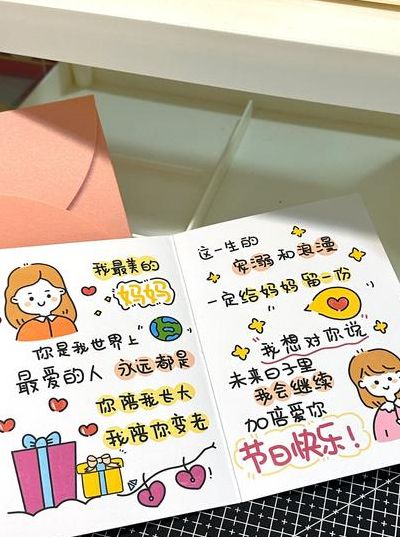 我最美的
妈妈
你是我世界上
最爱的人 永远都是
你陪我长大
我陪你变老
这一生的
宠溺和浪漫
一定给妈妈留一份
我想对你说
未来日子里
我会继续
加倍爱你
节日快乐！